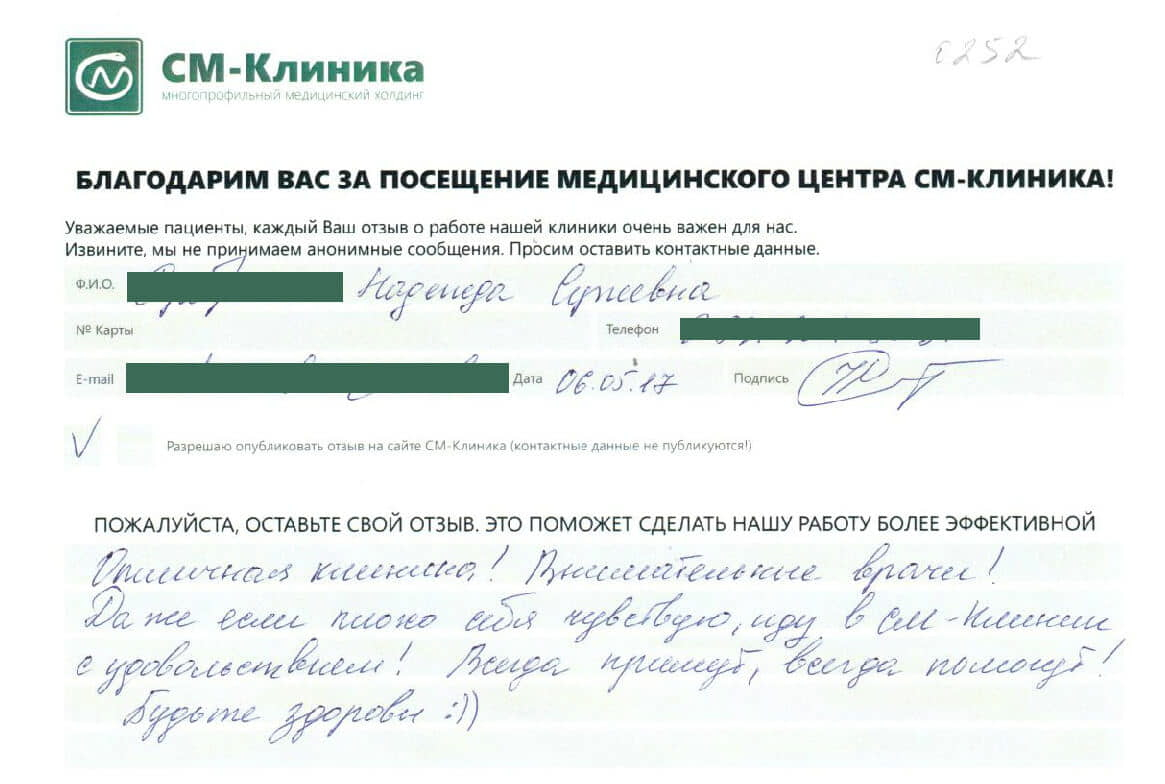 СМ-Клиника
многопрофильный медицинский холдинг
6252
БЛАГОДАРИМ ВАС ЗА ПОСЕЩЕНИЕ МЕДИЦИНСКОГО ЦЕНТРА СМ-КЛИНИКА!
Уважаемые пациенты, каждый Ваш отзыв о работе нашей клиники очень важен для нас.
Извините, мы не принимаем анонимные сообщения. Просим оставить контактные данные.
Ф.И.О. Надежда
№ Карты Телефон
E-mail Дата 06.05.17 Подпись
Разрешаю опубликовать отзыв на сайте СМ-Клиника (контактные данные не публикуются!)
ПОЖАЛУЙСТА, ОСТАВЬТЕ СВОЙ ОТЗЫВ. ЭТО ПОМОЖЕТ СДЕЛАТЬ НАШУ РАБОТУ БОЛЕЕ ЭФФЕКТИВНОЙ
Отличная клиника! Внимательные врачи!
Даже если плохо себя чувствую, иду в СМ-Клинику
с удовольствием! Всегда примут, всегда помогут!
Будьте здоровы :))